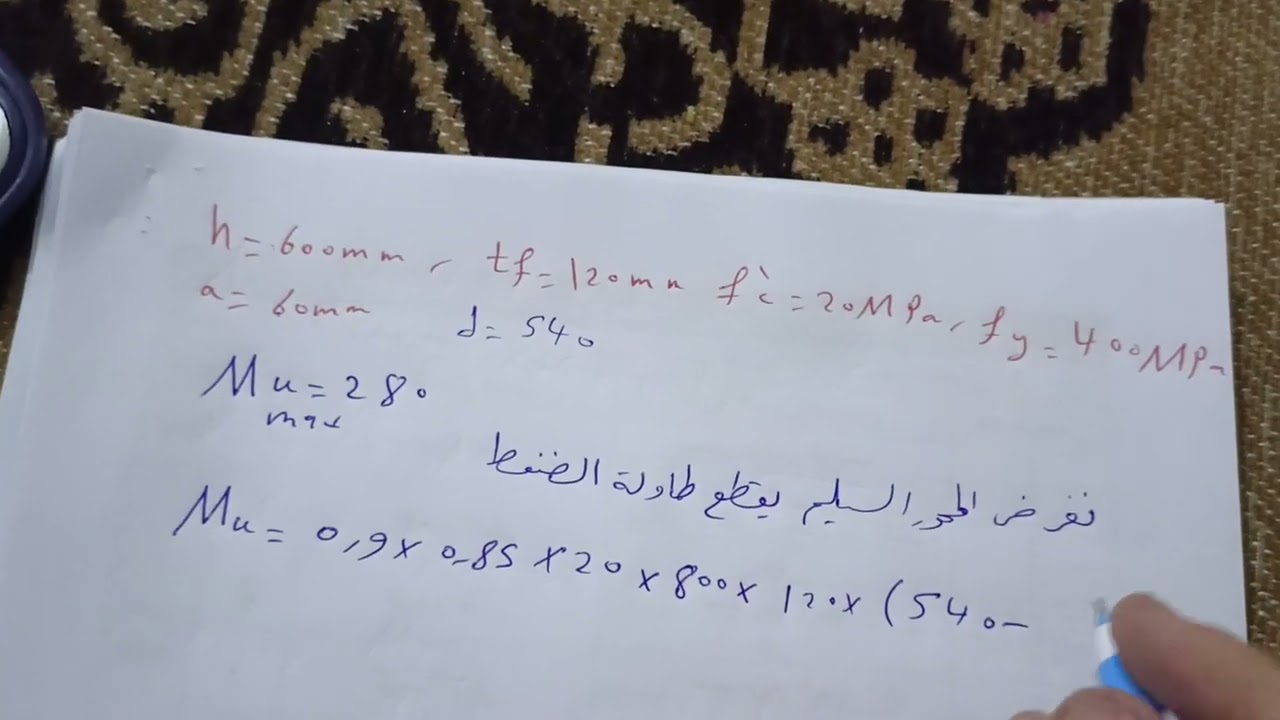 h = 600mm , tf = 120mm f'c = 20MPa , fy = 400MPa
a = 60mm d = 540
Mu = 280
max
نفرض المحور السليم يقطع طاولة الضغط
Mu = 0,9 x 0.85 x 20 x 800 x 120 x (540 -